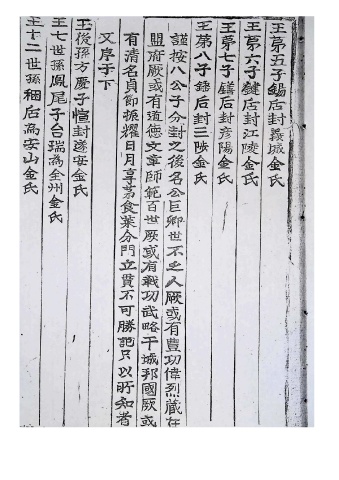 王第五子錫后封義城金氏
王第六子鍵后封江陵金氏
王第七子鐥后封彦陽金氏
王第八子錘后封三陟金氏
謹按八公子分封之後名公巨卿世不乏人厥或有豊功偉烈藏在
盟府厥或有道德文章師範百世厥或有戰功武略干城邦國厥或
有清名員節振耀日月享茅食菜分門立貫不可勝記只以所知者
文序于下
王後孫方慶子愃封遂安金氏
王七世孫鳳尾子台瑞為全州金氏
王十二世孫稛后為安山金氏